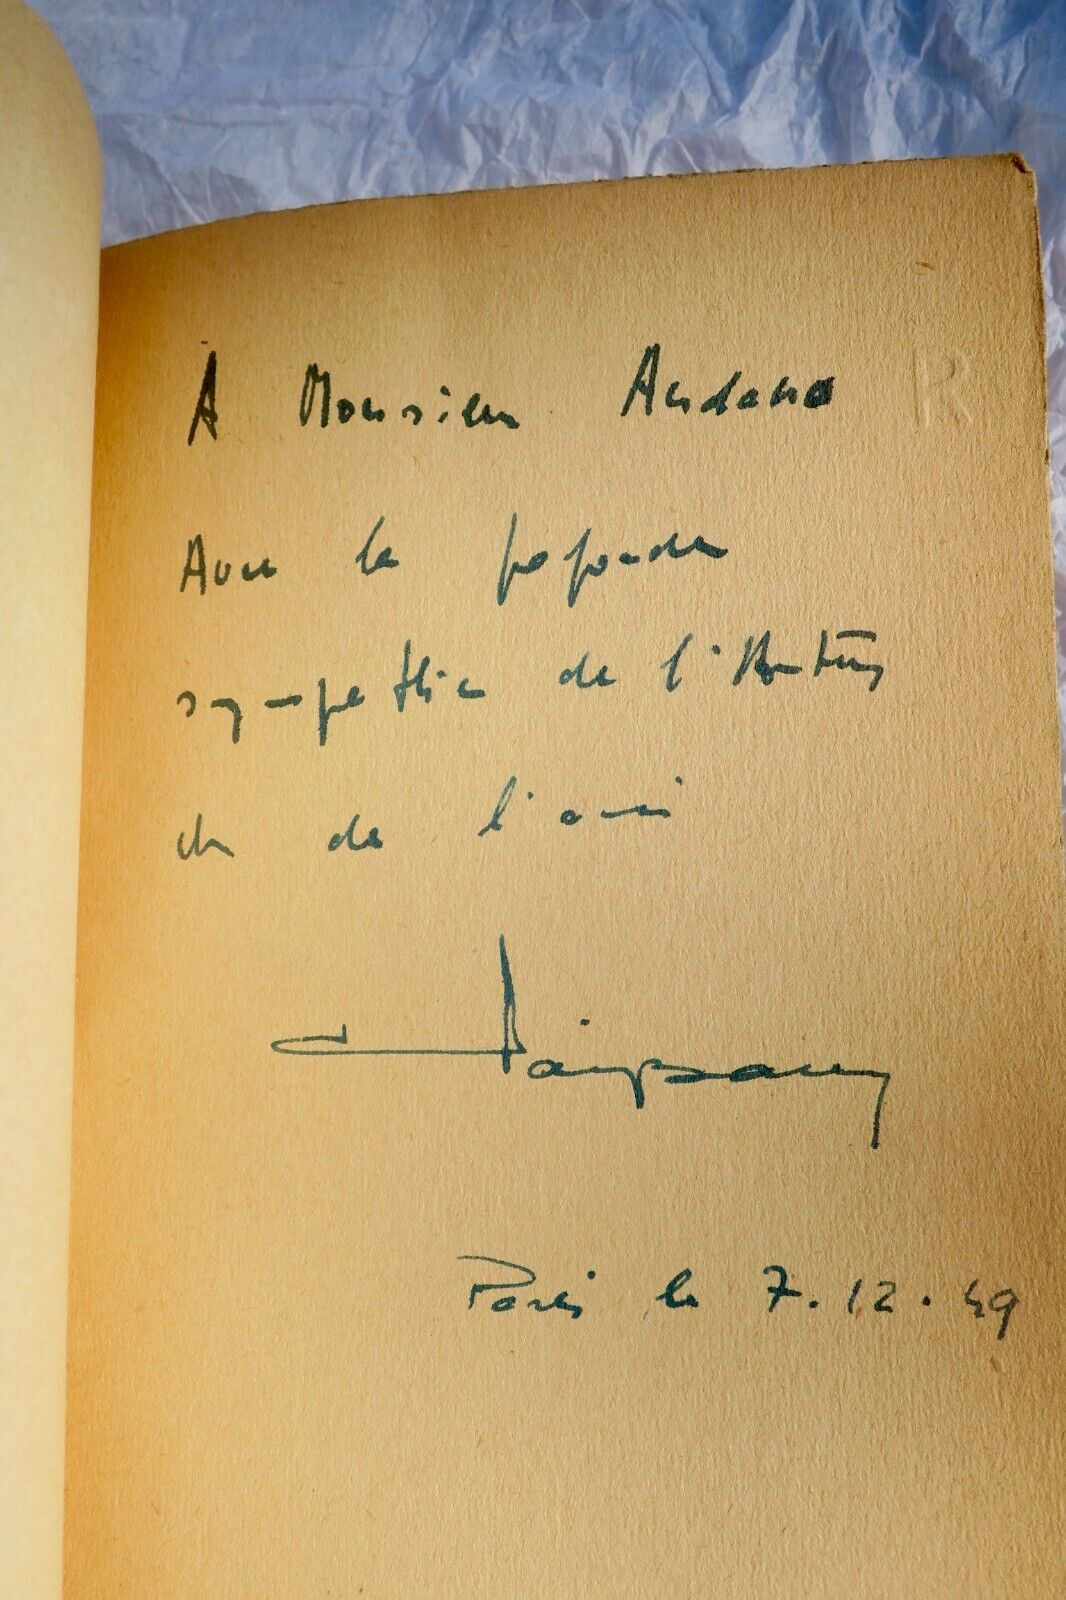 A Monsieur
Avec la profonde
sympathie de l'
et de l'ami
Paris le 7.12.49
R